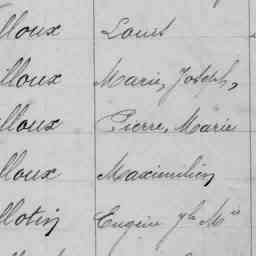 lloux Louis
lloux Marie, Joseph,
lloux Pierre, Marie
lloux Maximilien
llotin Eugène